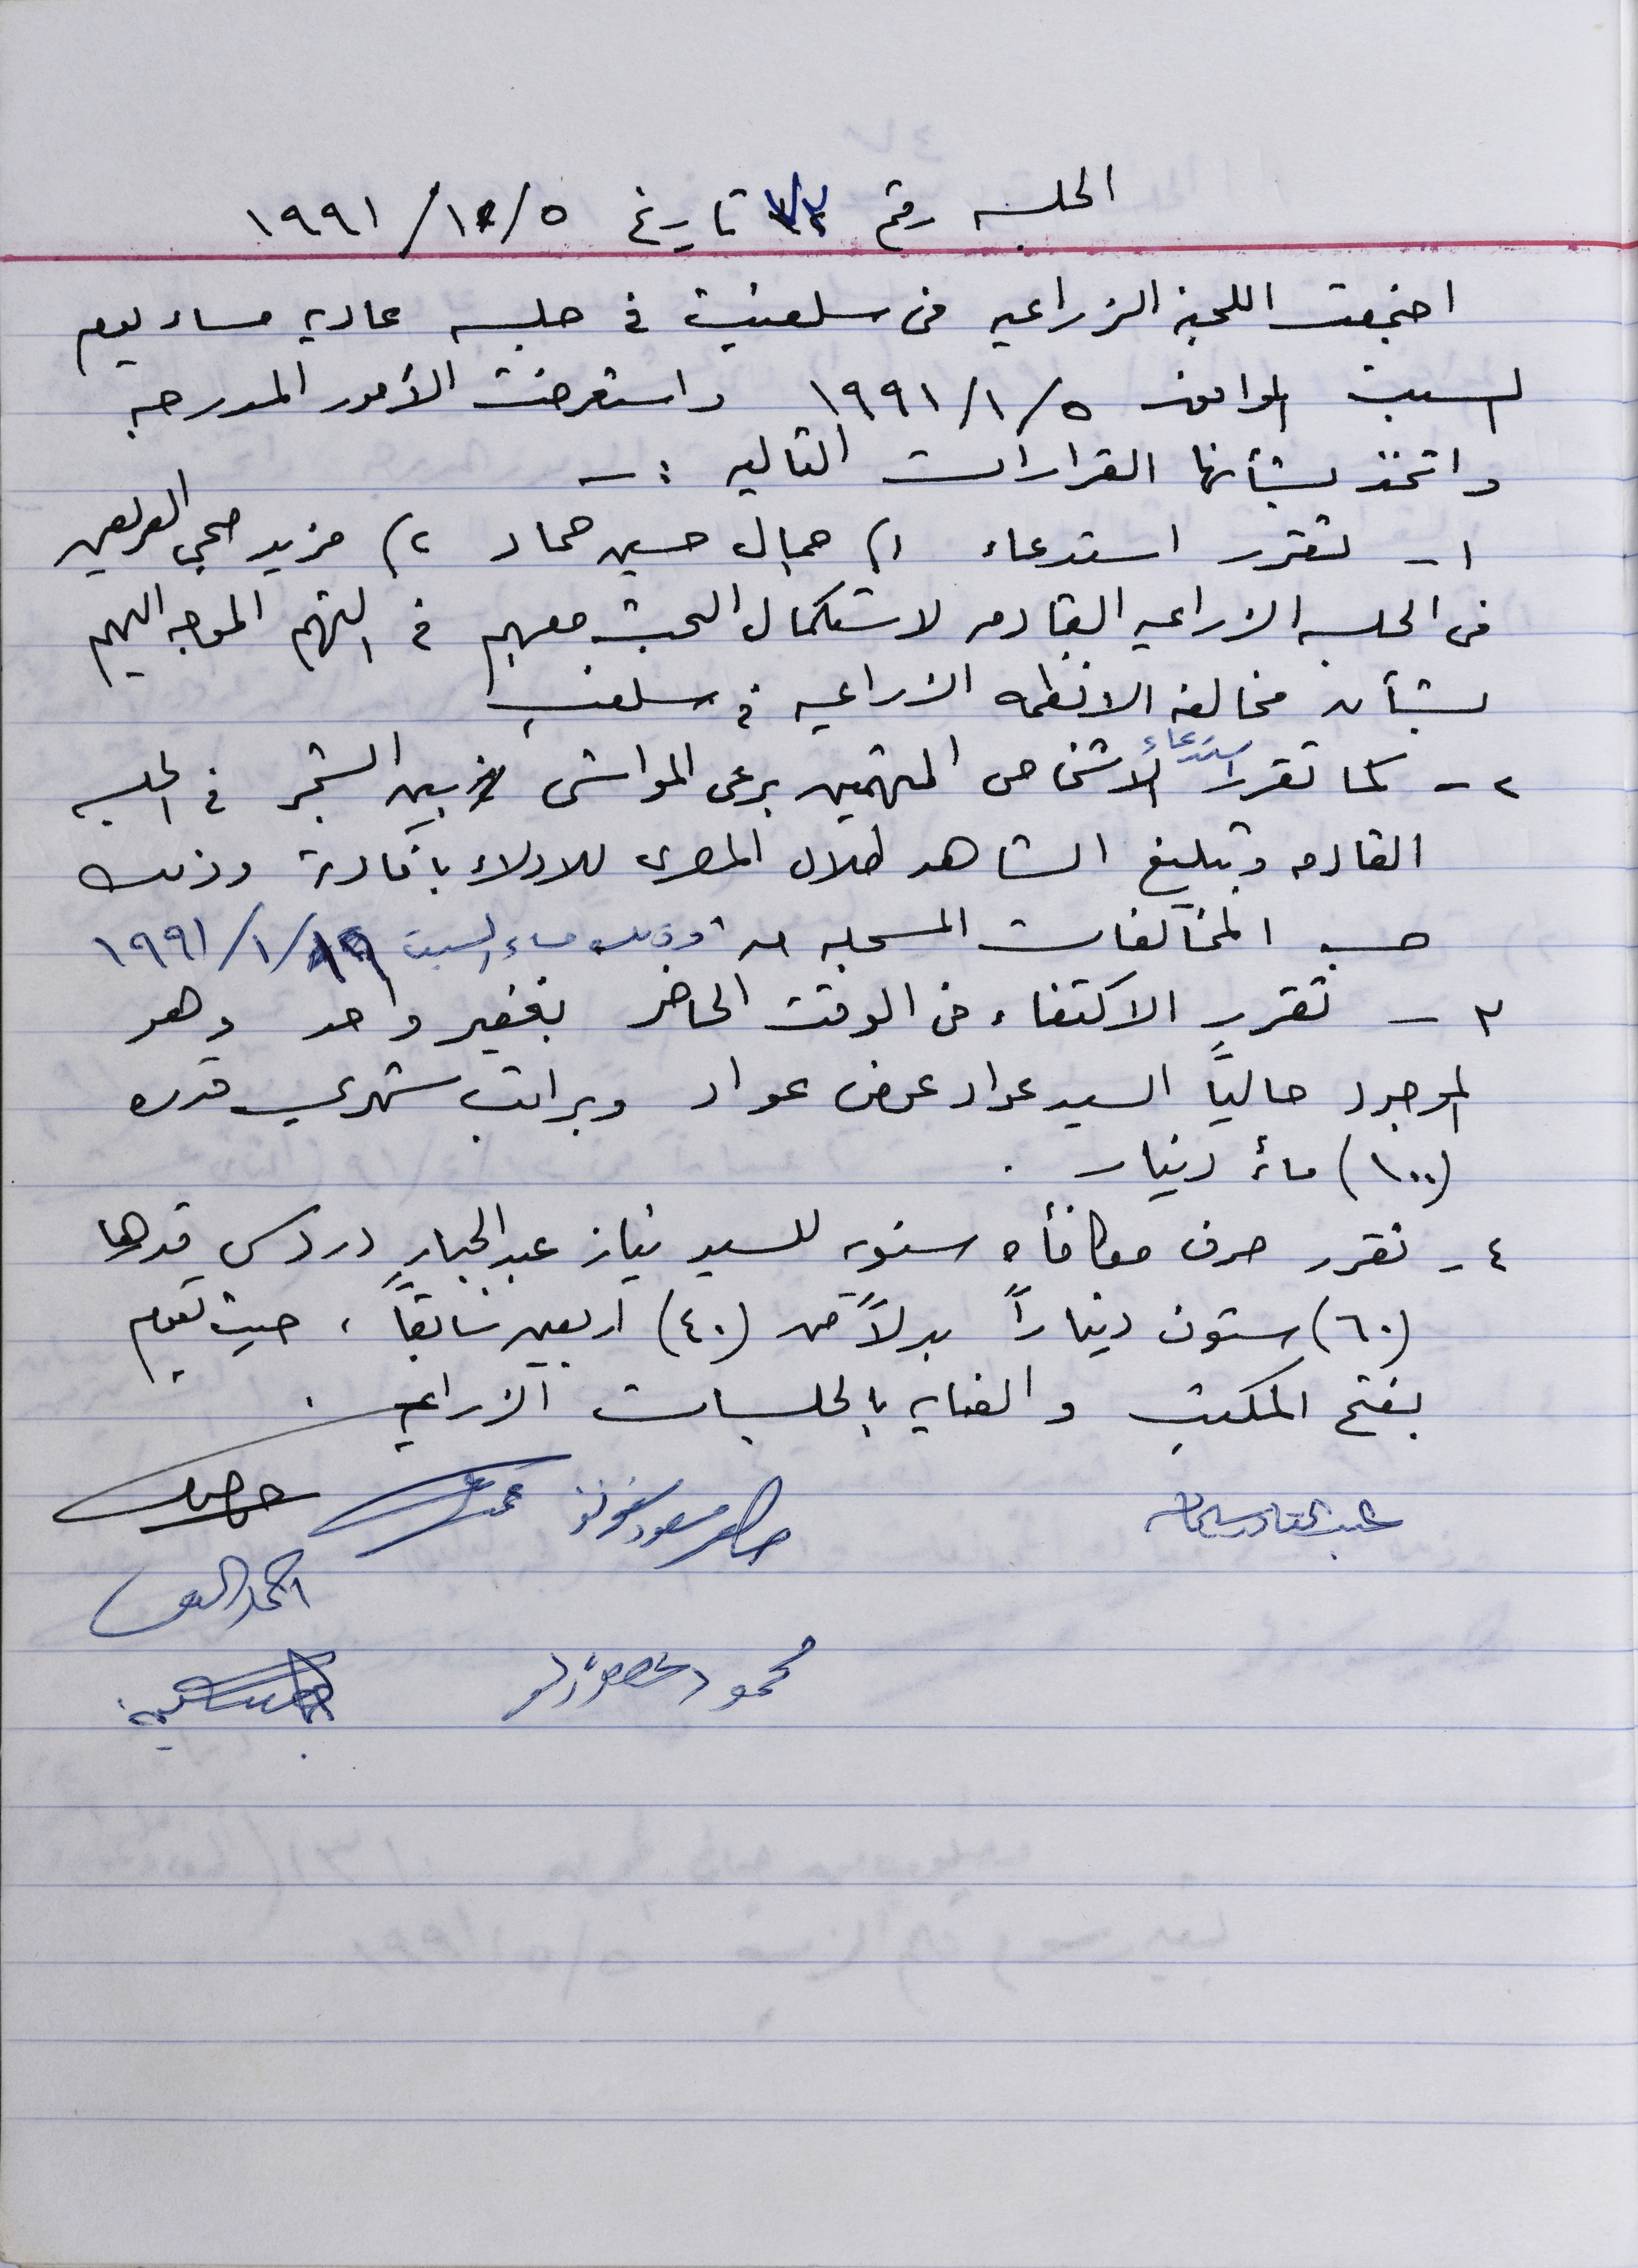 الجلسه رقم ٧٢ تاريخ ٥/١/١٩٩١
اجتمعت اللجنة الزراعيه في سلفيت في جلسه عاديه مساء يوم
السبت الموافق ٥/١/١٩٩١ واستعرضت الأمور المدرجه
واتخذ بشأنها القرارات التاليه :-
١- تقرر استدعاء ١) جمال حسين حماد ٢) مزيد صبحي
في الجلسه الزراعيه القادمه لاستكمال البحث معهم في التهم الموجه اليهم
بشأن مخالفة الانظمه الزراعيه في سلفيت
٢- كما تقرر استدعاء الاشخاص المتهمين برعي المواشي بين الشجر في الجلسه
القادمه وتبليغ الشاهد طلال المصري للادلاء بافادته وذلك
حسب المخالفات المسجله وذلك مساء السبت ١٩/١/١٩٩١
٣- تقرر الاكتفاء في الوقت الحاضر بغفير واحد وهو
الموجود حالياً السيد عواد عوض عواد وبراتب شهري قدره
(١٠٠) مائة دينار .
٤- تقرر صرف مكافأه سنويه للسيد نياز عبد الجبار دردس قدرها
(٦٠) ستون ديناراً بدلاً من (٤٠) اربعين سابقاً ، حيث يقوم
بفتح المكتب والعنايه بالجلسات الزراعيه .
عبد القادر
محمود